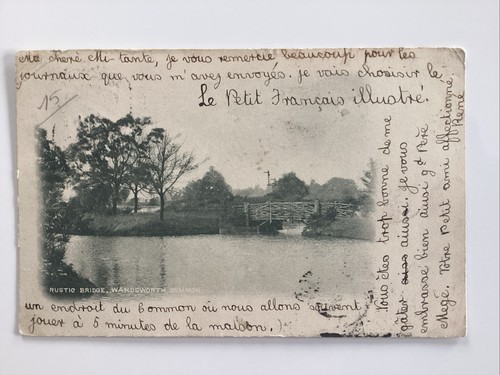 Ma chere Mi-tante, je vous remercie beaucoup pour les
journaux que vous m'avez envoyés. je vais choisir le
Le Petit Français illustré.
15
Vous êtes trop bonne de me
gâter ainsi. je vous
embrasse bien ainsi q
Mégé. Votre petit ami affectionné
René
RUSTIC BRIDGE, WANDSWORTH COMMON
un endroit du Common où nous allons souvent
jouer à 5 minutes de la maison.)